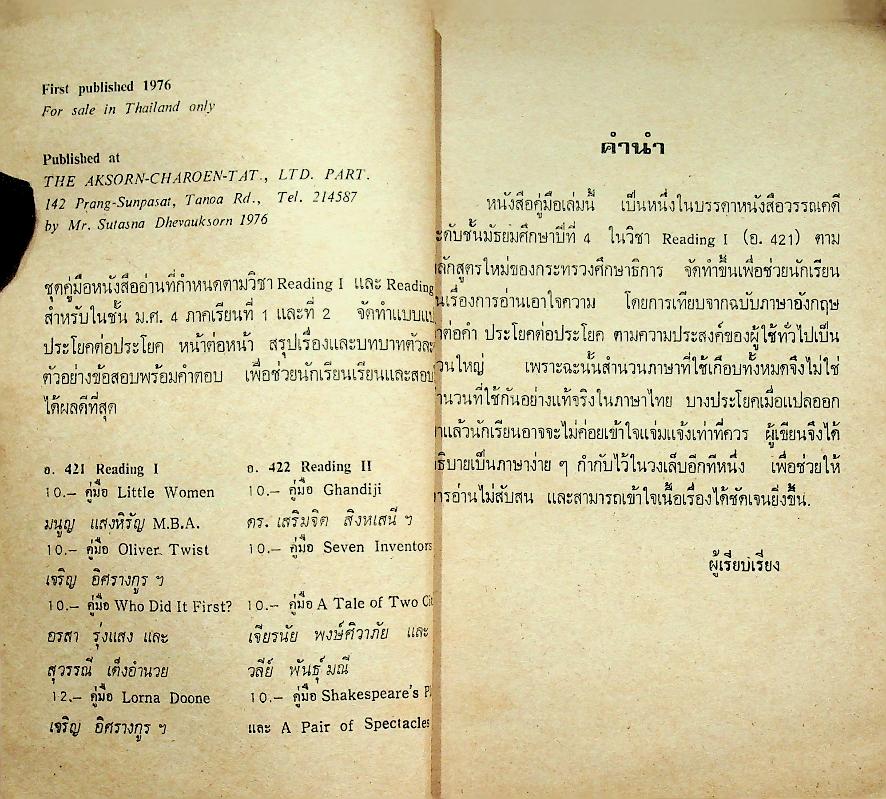 First published 1976
For sale in Thailand only
Published at
THE AKSORN-CHAROEN-TAT., LTD. PART.
142 Prang-Sunpasat, Tanoa Rd., Tel. 214587
by Mr. Sutasna Dhevauksorn 1976
ชุดคู่มือหนังสืออ่านที่กำหนดตามวิชา Reading I และ Reading
สำหรับในชั้น ม.ศ. 4 ภาคเรียนที่ 1 และที่ 2 จัดทำแบบแป
ประโยคต่อประโยค หน้าต่อหน้า สรุปเรื่องและบทบาทตัวละ
ตัวอย่างข้อสอบพร้อมคำตอบ เพื่อช่วยนักเรียนเรียนและสอบ
ได้ผลดีที่สุด
อ. 421 Reading I
10.– คู่มือ Little Women
มนูญ แสงหิรัญ M.B.A.
10.– คู่มือ Oliver Twist
เจริญ อิศรางกูร ฯ
10.– คู่มือ Who Did It First?
อรสา รุ่งแสง และ
สุวรรณี เต็งอำนวย
12.– คู่มือ Lorna Doone
เจริญ อิศรางกูร ฯ
อ. 422 Reading II
10.– คู่มือ Ghandiji
ดร. เสริมจิต สิงหเสนี ฯ
10.– คู่มือ Seven Inventors
10.– คู่มือ A Tale of Two Ci
เจียรนัย พงษ์ศิวาภัย และ
วลีย์ พันธุ์มณี
10.– คู่มือ Shakespeare's Pl
และ A Pair of Spectacles
คำนำ
หนังสือคู่มือเล่มนี้ เป็นหนึ่งในบรรดาหนังสือวรรณคดี
ะดับชั้นมัธยมศึกษาปีที่ 4 ในวิชา Reading I (อ. 421) ตาม
ลักสูตรใหม่ของกระทรวงศึกษาธิการ จัดทำขึ้นเพื่อช่วยนักเรียน
นเรื่องการอ่านเอาใจความ โดยการเทียบจากฉบับภาษาอังกฤษ
าต่อคำ ประโยคต่อประโยค ตามความประสงค์ของผู้ใช้ทั่วไปเป็น
วนใหญ่ เพราะฉะนั้นสำนวนภาษาที่ใช้เกือบทั้งหมดจึงไม่ใช่
ำนวนที่ใช้กันอย่างแท้จริงในภาษาไทย บางประโยคเมื่อแปลออก
าแล้วนักเรียนอาจจะไม่ค่อยเข้าใจแจ่มแจ้งเท่าที่ควร ผู้เขียนจึงได้
ธิบายเป็นภาษาง่าย ๆ กำกับไว้ในวงเล็บอีกทีหนึ่ง เพื่อช่วยให้
ารอ่านไม่สับสน และสามารถเข้าใจเนื้อเรื่องได้ชัดเจนยิ่งขึ้น.
ผู้เรียบเรียง